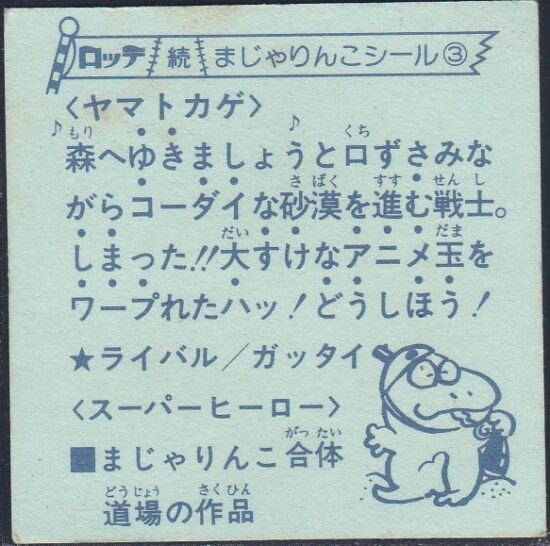 ロッテ 続 まじゃりんこシール③
〈ヤマトカゲ〉
♪森へゆきましょう♪と口ずさみな
がらコーダイな砂漠を進む戦士。
しまった!!大すけなアニメ玉を
ワープれたハッ!どうしほう!
★ライバル/ガッタイ
〈スーパーヒーロー〉
■まじゃりんこ合体
道場の作品